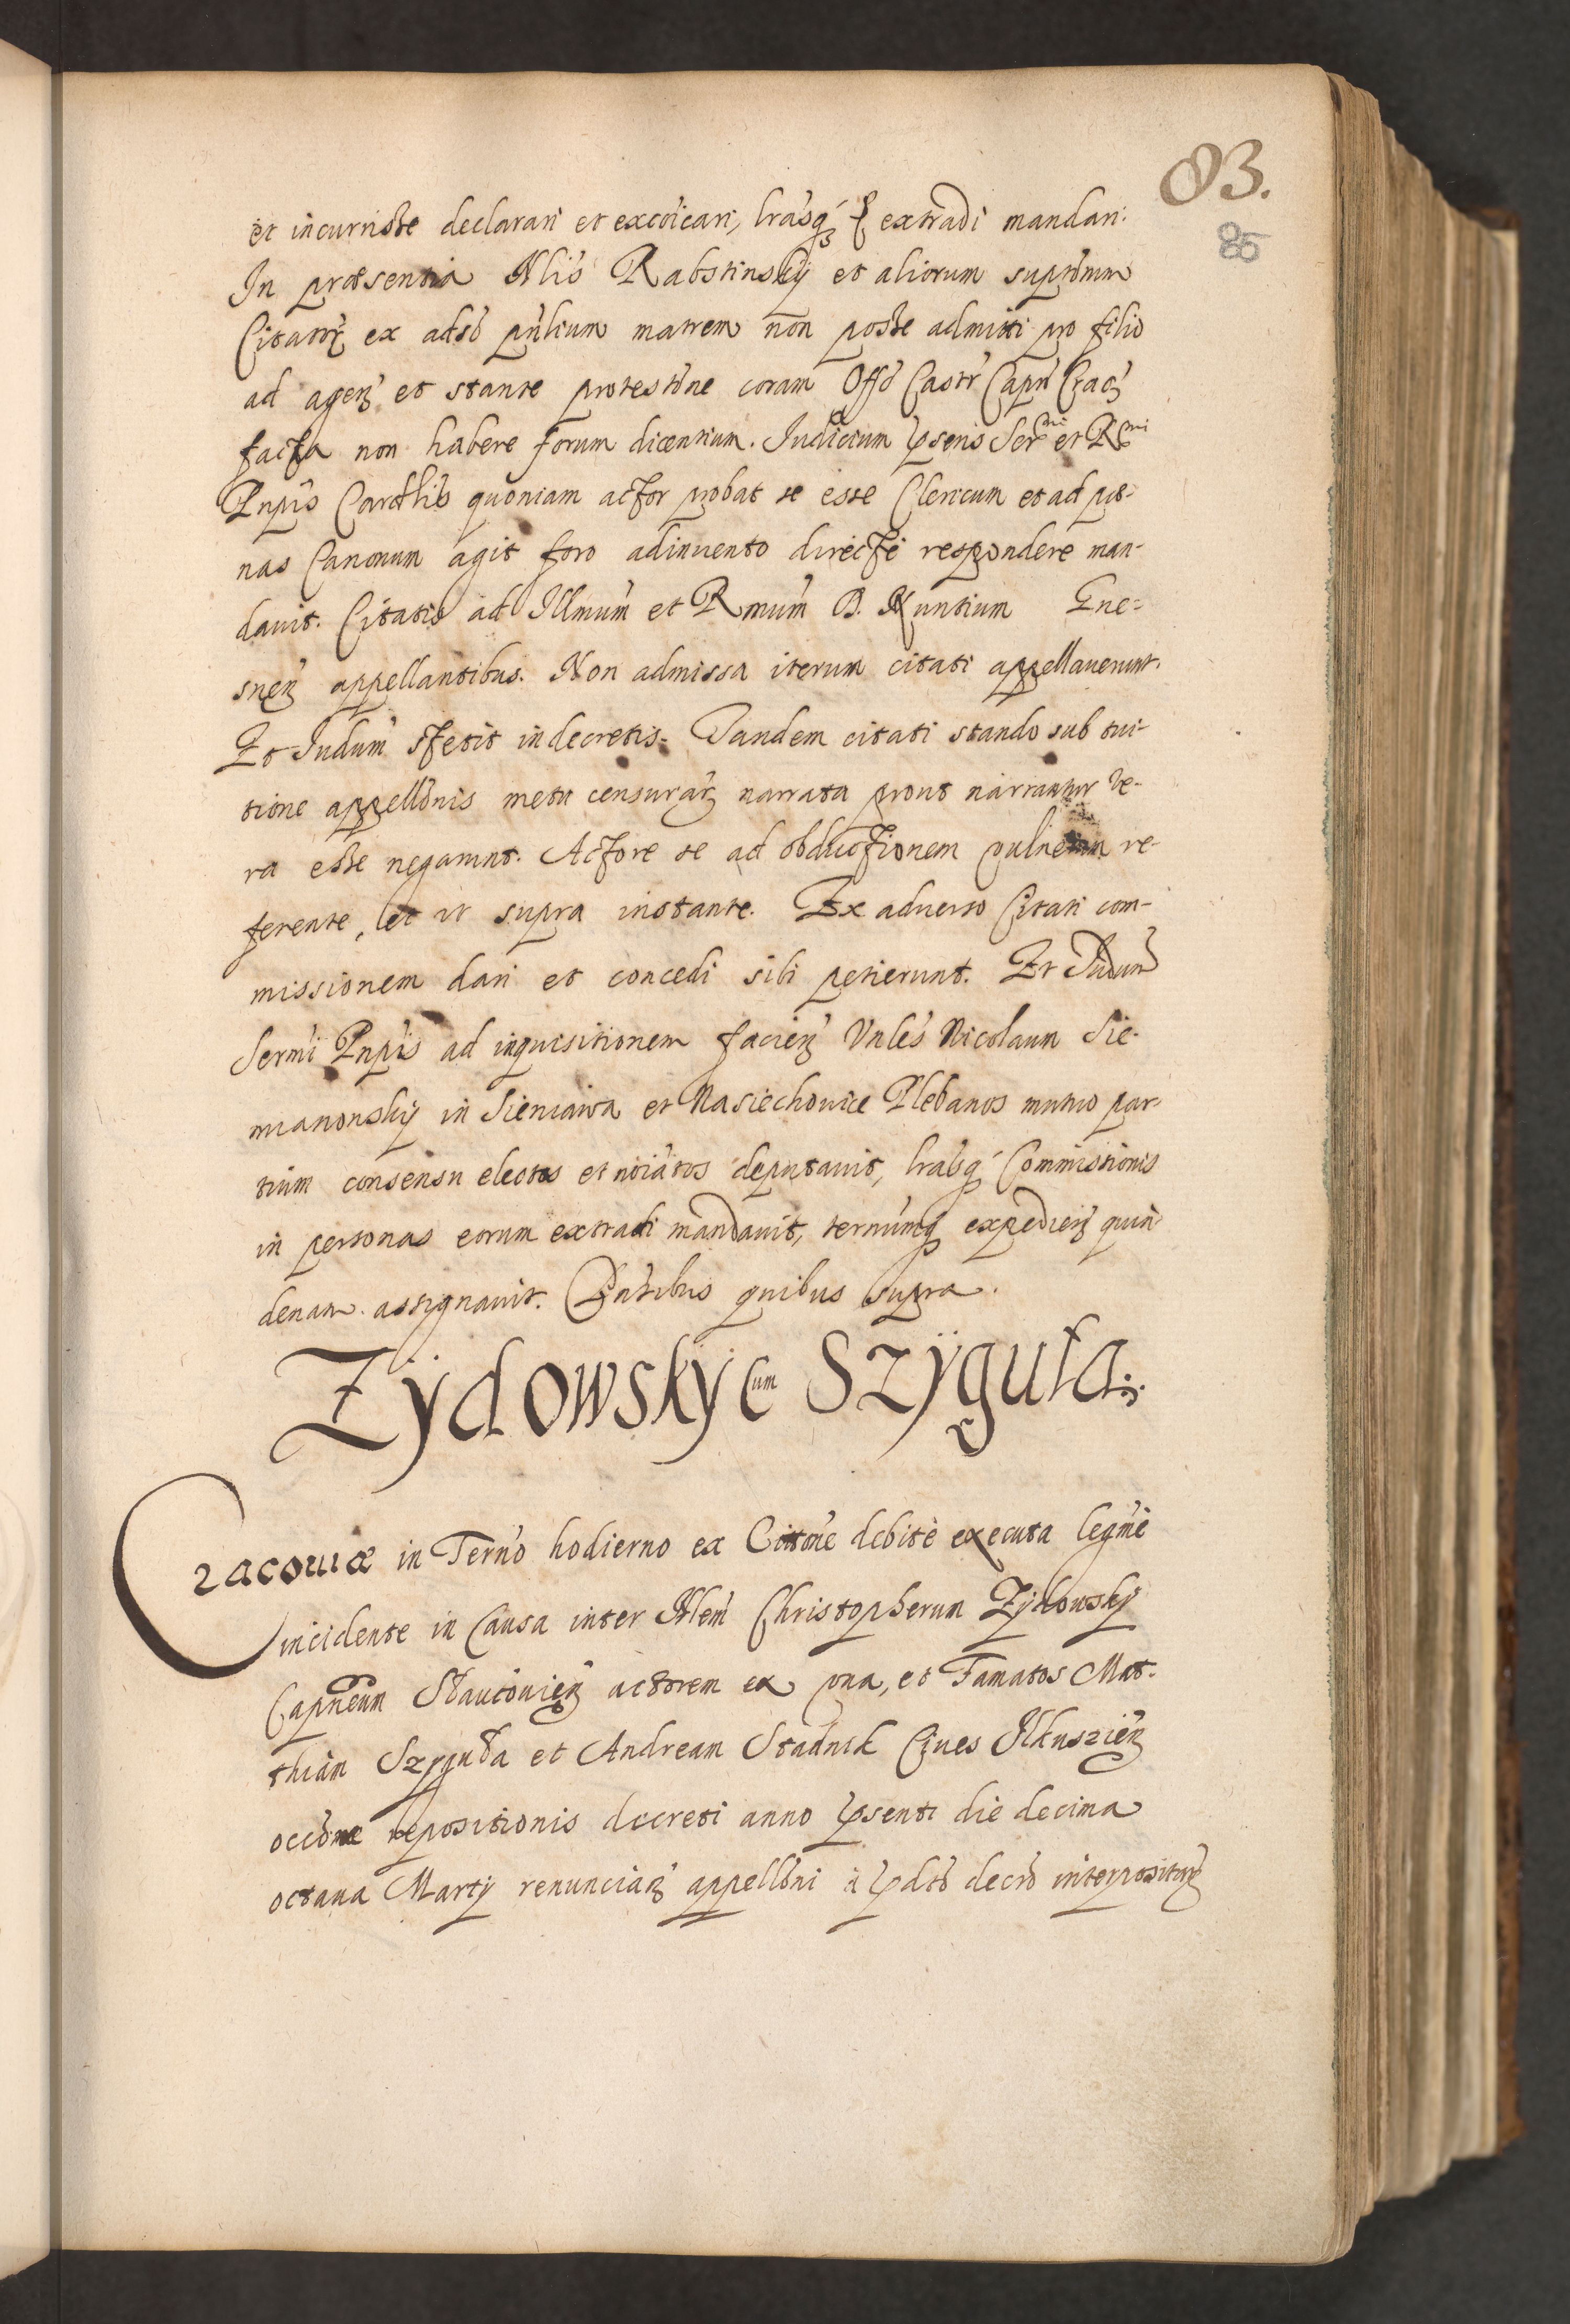 83.
85
et incurrisse declarari et excoicari, lrasq₃ extradi mandari.
In præsentia Nlis Rabstinskÿ et aliorum suprōrum
Citator ex adso pntium matrem non posse admitti pro filio
ad agen et stante protestōne coram Offō Castr Capn Crac
facta non habere forum dicentium. Judicium psens Sermi et Rmi
Pnpis Cardlis quoniam actor probat se esse Clericum et ad pœ-
nas Canonum agit foro adinvento directè respondere man-
davit. Citatis ad Illmum et Rmum D. Nuntium Gne-
snen appellantibus. Non admissa iterum citati appellaverunt.
Et Judum stetit in decretis. Tandem citati stando sub tui-
tione appellōnis metu censurar narrata prout narrantur ve-
ra esse negarunt. Actore se ad obductionem vulnerum re-
ferente, et ut supra instante. Ex adverso Citati com-
missionem dari et concedi sibi petierunt. Et Judum
Sermi Pnpis ad inquisitionem facien Vnles Nicolaum Sie-
mianonskÿ in Sieniawa et Nasiechouice Plebanos mutuo par-
tium consensu electos et noiatos deputauit, lrasq Commissionis
in personas eorum extradi mandauit, ternumq expedien quin-
denam assignauit. Pntibus quibus supra.
Zÿdowskÿ cum Szÿguła.
Cracouiæ in Terno hodierno ex Citōne debitè executa legmè
incidente in Causa inter Nlem Christopherum Zÿdouskÿ
Capneum actorem ex vna, et Famatos Mat-
thiam Szyguła et Andream Stadnik Ciues Ilkuszien
occōne repositionis decreti anno psenti die decima
octaua Martÿ renuncian appellōni à pdto decro interpositar